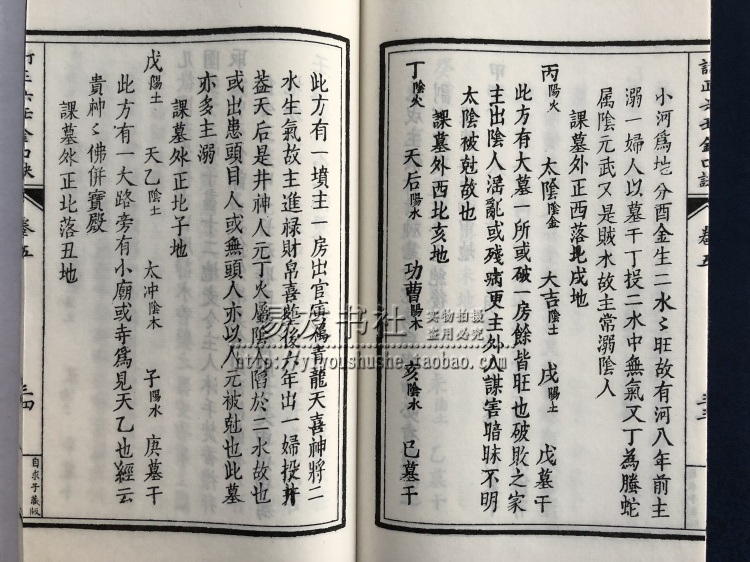 小河爲坵分酉金生二水〻旺故有河八年前主
溺一婦人以墓干丁投二水中無氣又丁為螣蛇
属陰元武又是賊水故主常溺陰人
課墓外正西落戌地
丙陽火 太陰陰金 大吉陰土 戌陽土 戊墓干
此方有大墓一所或破一房餘皆旺也破敗之家
主出陰人滛亂或残病更主外人謀害暗昧不明
太陰被尅故也
課墓外西北亥地
丁陰火 天后陽水 功曹陽木 亥陰水 己墓干
此方有一墳主一房出官寅為青龍天喜神將二
水生氣故主進禄財帛喜慈後六年出一婦投井
葢天后是井神人元丁火屬陰人陷於二水故也
或出患頭目人或無頭人亦以人元被尅也此墓
亦多主溺
課墓外正北子地
戊陽土 天乙陰土 太冲陰木 子陽水 庚墓干
此方有一大路旁有小廟或寺爲見天乙也經云
貴神〻佛併寶殿
課墓外正北落丑地
卷五
三四
自求子藏版
易友书社
实物拍摄
盗用必究
http://yiyoushushe.taobao.com